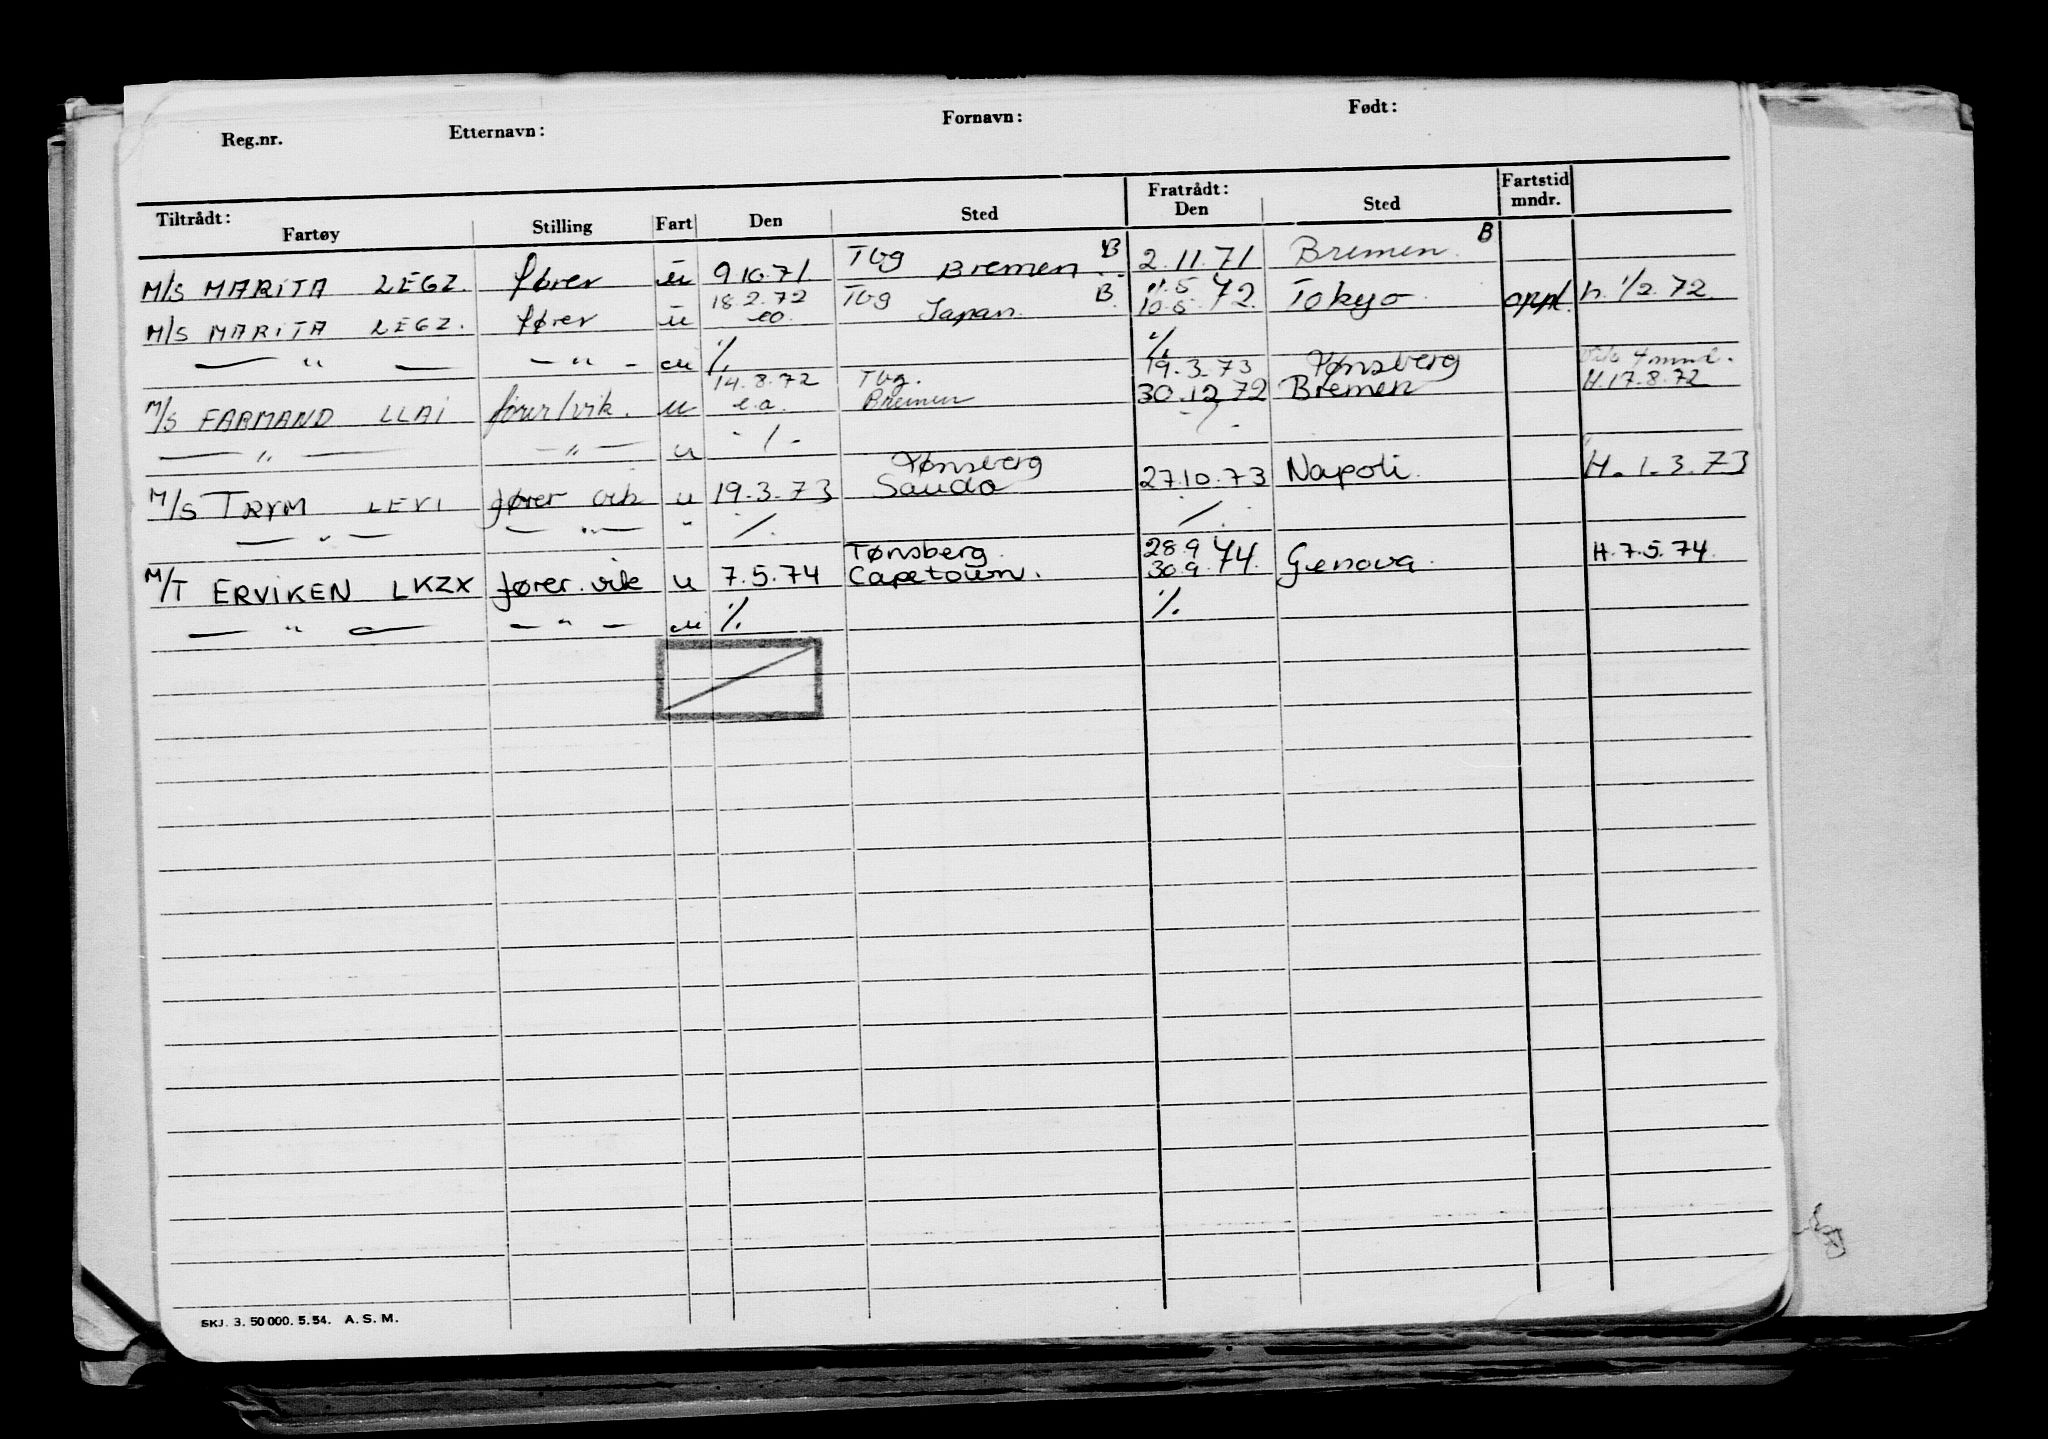 Reg.nr. Etternavn: Fornavn: Født:
Tiltrådt: Fratrådt: Fartstid
Fartøy Stilling Fart Den Sted Den Sted mndr.
M/S MARITA LEGZ. fører u 9.10.71 Tbg Bremen B 2.11.71 Bremen. B
M/S MARITA LEGZ. fører u 18.2.72 ca. Tbg Japan. B. 11.5 10.5.72 Tokyo oppl. h. 1/2.72.
— " — — " — u ./. ./.
19.3.73 Tønsberg 4 mnd.
M/S FARMAND LLAI fører/vik. u 14.8.72 e.a. Tbg. Bremen 30.12.72 Bremen H.17.8.72
— " — — " — u - / - - / -
M/S TRYM LEVI fører vik u 19.3.73 Tønsberg Sauda 27.10.73 Napoli. H. 1.3.73
— " — — " — " ./. ./.
M/T ERVIKEN LKZX fører. vik u 7.5.74 Tønsberg. Capetown. 28.9 30.9.74. Genova. H.7.5.74.
— " — — " — u ./. ./.
SKJ. 3. 50 000. 5. 54. A. S. M.